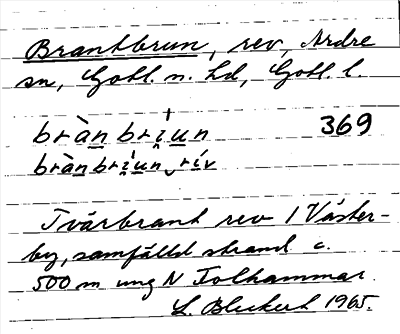 Brantbrun, rev, Ardre
sn, Gotl. n. hd, Gotl. l.
bràn briun 369
bràn briun rív
Tvärbrant rev i Väster-
by, samfälld strand c.
500 m ung N Tolhammar.
L. Bleckert 1965.